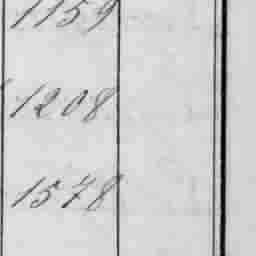 1159
1208
1578